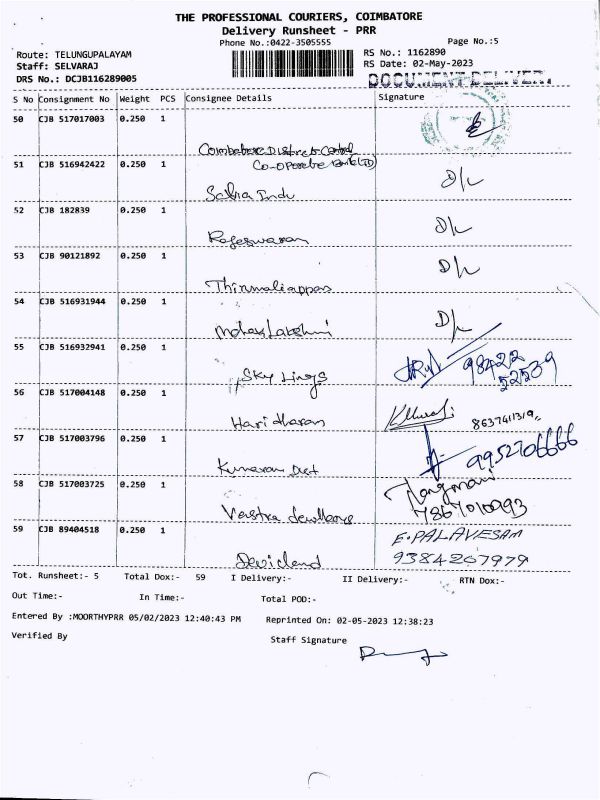 THE PROFESSIONAL COURIERS, COIMBATORE
Delivery Runsheet - PRR
Phone No.:0422-3505555
Page No.:5
Route: TELUNGUPALAYAM
RS No.: 1162890
Staff: SELVARAJ
RS Date: 02-May-2023
DRS No.: DCJB116289005
DOCUMENT DELIVERY
S No Consignment No Weight PCS Consignee Details Signature
50 CJB 517017003 0.250 1
Coimbatore District Central
Co-Operative Bank LTD
51 CJB 516942422 0.250 1 D/L
52 CJB 182839 0.250 1 D/L
Rajeswaran
53 CJB 90121892 0.250 1 D/L
Thirumaliappan
54 CJB 516931944 0.250 1 D/L
55 CJB 516932941 0.250 1 98422
52539
Sky Lings
56 CJB 517004148 0.250 1 8637411319
Hariharan
57 CJB 517003796 0.250 1 9952706666
Kumaran
58 CJB 517003725 0.250 1
7867010993
Vastra
59 CJB 89404518 0.250 1 E. PALAVESAM
9384267979
Tot. Runsheet:- 5 Total Dox:- 59 I Delivery:- II Delivery:- RTN Dox:-
Out Time:- In Time:- Total POD:-
Entered By :MOORTHYPRR 05/02/2023 12:40:43 PM Reprinted On: 02-05-2023 12:38:23
Verified By Staff Signature